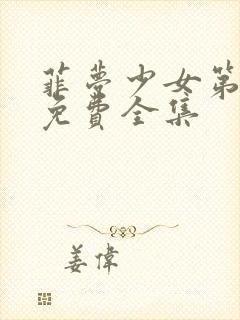 菲夢少女第
免費全集
姜偉